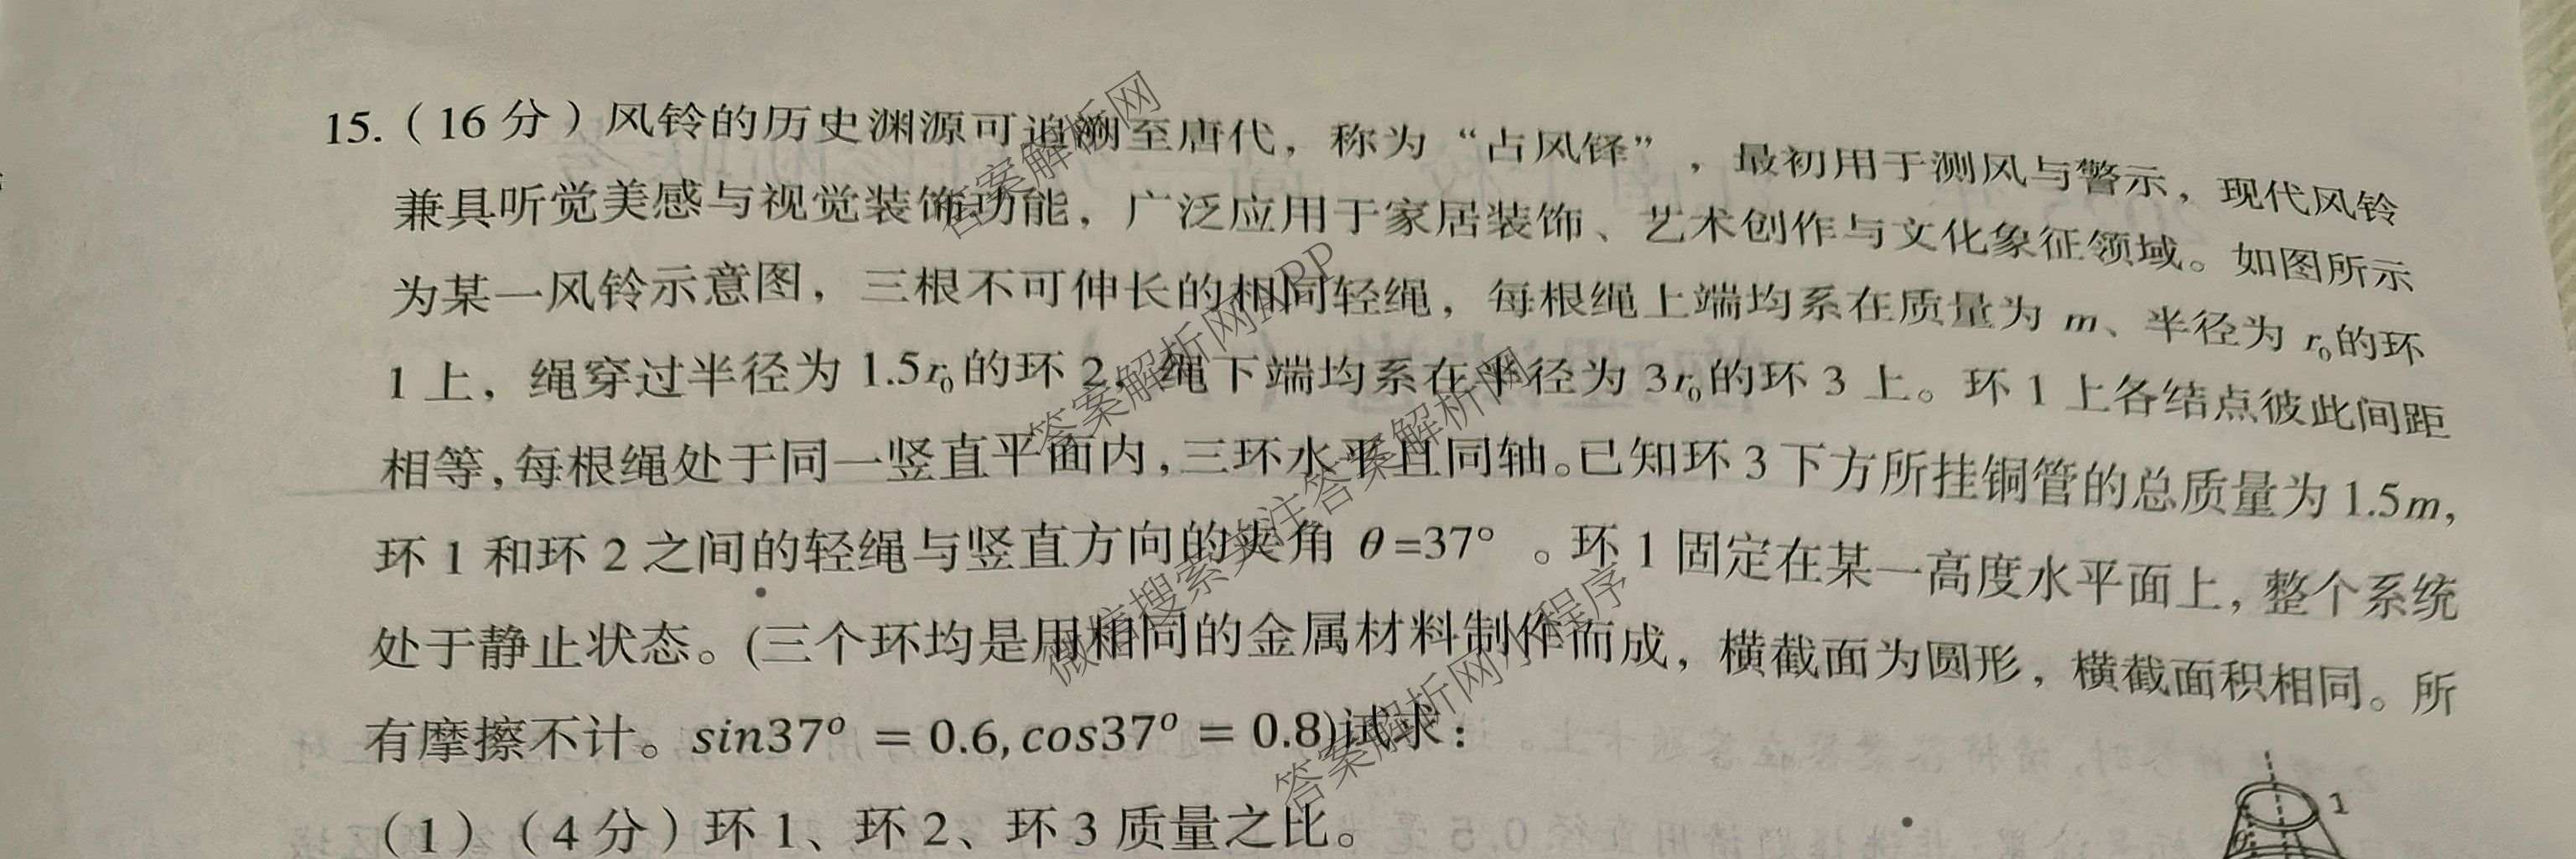 15.（16分）风铃的历史渊源可追溯至唐代，称为“占风铎”，最初用于测风与警示，现代风铃
兼具听觉美感与视觉装饰功能，广泛应用于家居装饰、艺术创作与文化象征领域。如图所示
为某一风铃示意图，三根不可伸长的相同轻绳，每根绳上端均系在质量为 m、半径为 r₀的环
1上，绳穿过半径为1.5r₀的环2，绳下端均系在半径为3r₀的环3上。环1上各结点彼此间距
相等,每根绳处于同一竖直平面内,三环水平且同轴。已知环3下方所挂铜管的总质量为1.5m,
环1和环2之间的轻绳与竖直方向的夹角 θ=37° 。环1固定在某一高度水平面上，整个系统
处于静止状态。(三个环均是用相同的金属材料制作而成，横截面为圆形，横截面积相同。所
有摩擦不计。sin37° = 0.6, cos37° = 0.8)试求：
（1）（4分）环1、环2、环3质量之比。
1
答案解析网
答案解析网APP
微信搜索关注答案解析网
答案解析网小程序